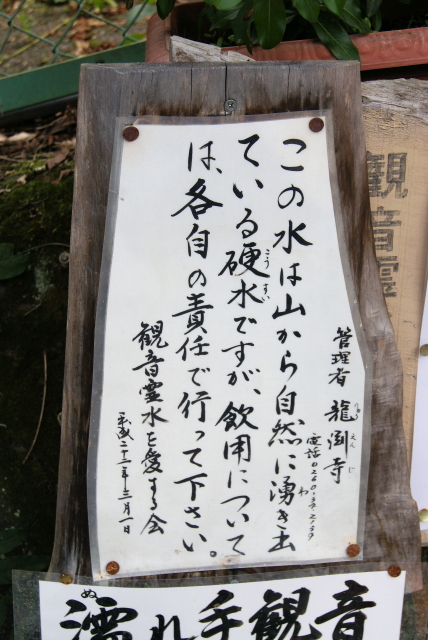 この水は山から自然に湧き出
ている硬水ですが、飲用について
は、各自の責任で行って下さい。
観音霊水を愛する会
平成二十一年三月一日
管理者 龍渕寺
電話0260-39-2139
濡れ手観音
観音霊